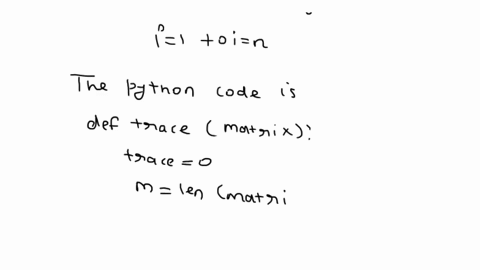 i=1 to i=n
The python code is
def trace (matrix):
trace = 0
m = len (matri